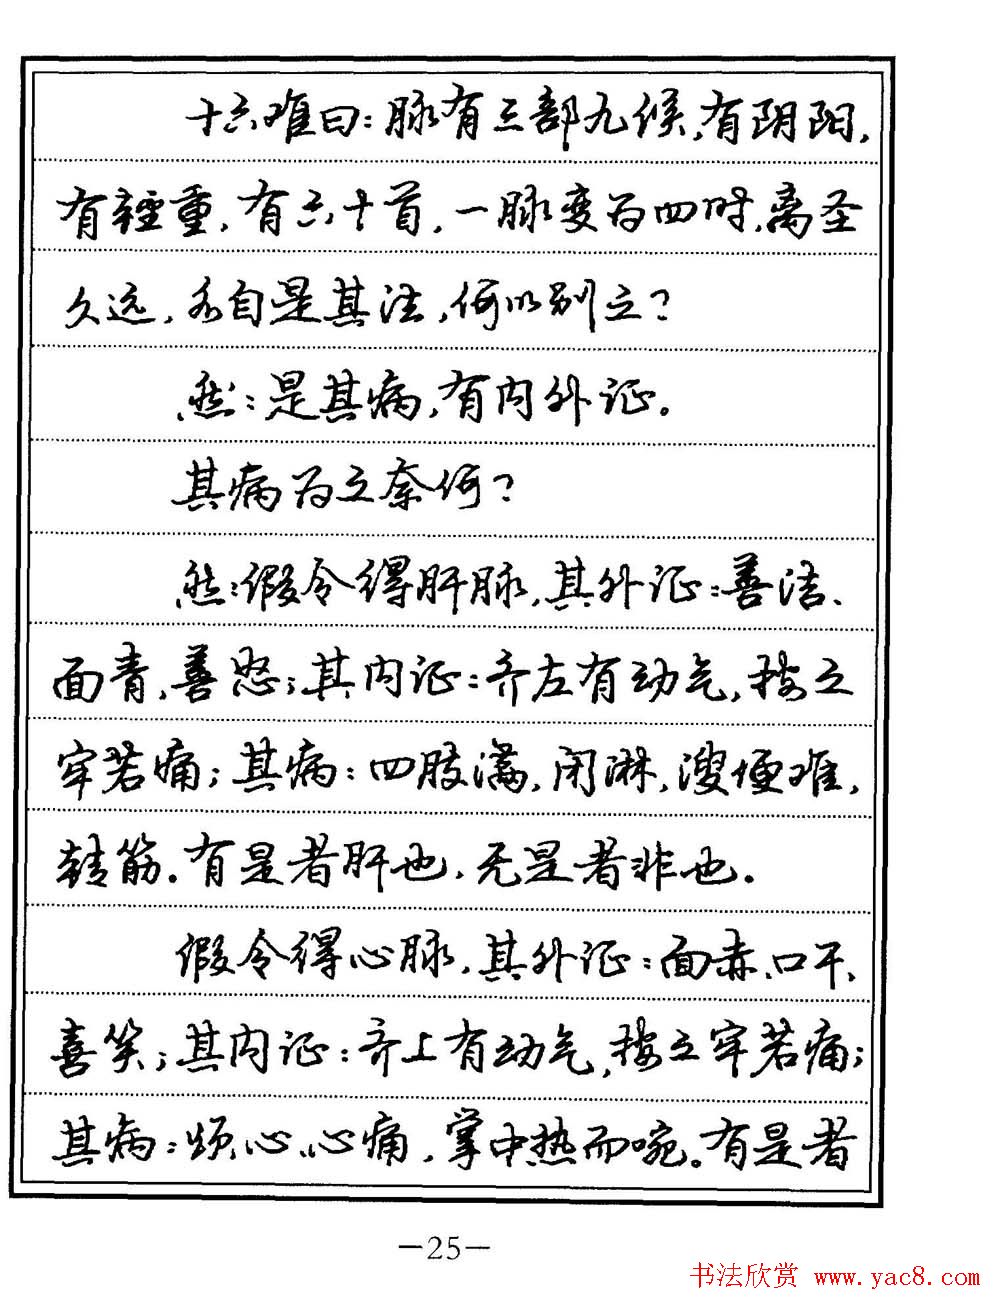 十六难曰：脉有三部九候，有阴阳，
有轻重，有六十首，一脉变为四时，离圣
久远，各自是其法，何以别之？
然：是其病，有内外证。
其病为之奈何？
然：假令得肝脉，其外证：善洁、
面青，善怒；其内证：齐左有动气，按之
牢若痛；其病：四肢满，闭淋，溲便难，
转筋。有是者肝也，无是者非也。
假令得心脉，其外证：面赤、口干、
喜笑；其内证：齐上有动气，按之牢若痛；
其病：烦心、心痛，掌中热而啘。有是者
—25—
书法欣赏 www.yac8.com